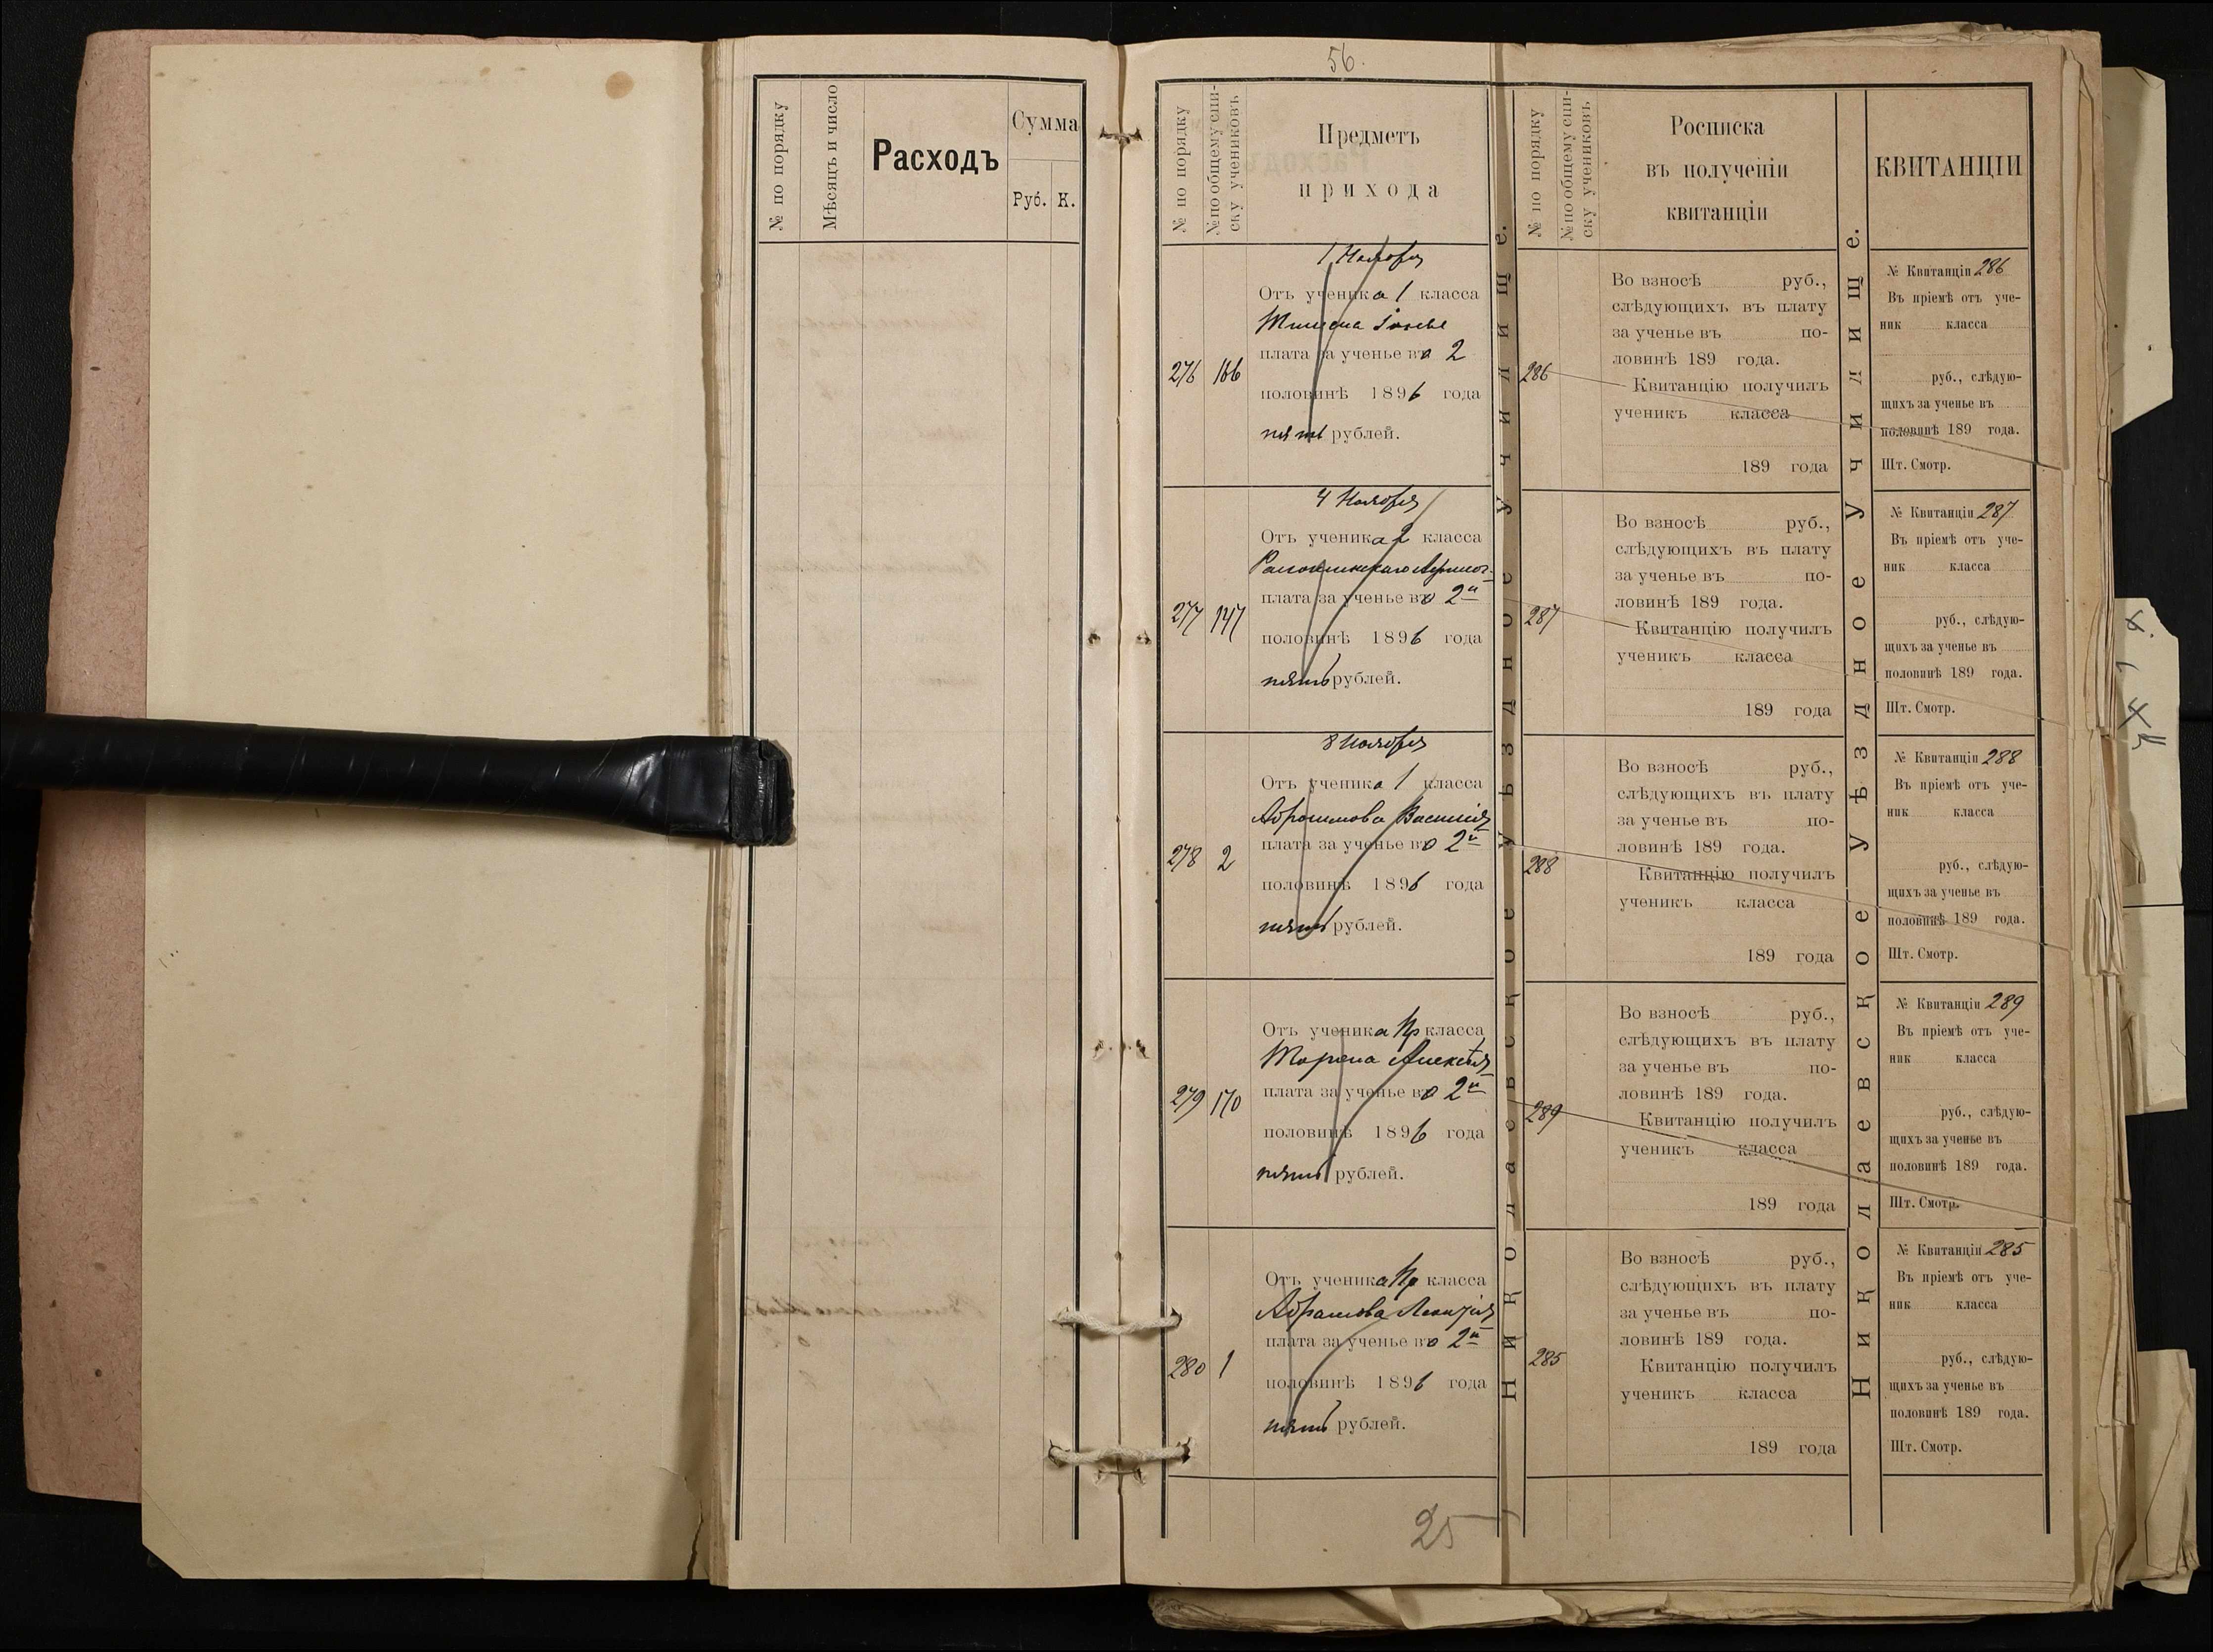 № по порядку
Мѣсяцъ и число
Расходъ
Сумма
Руб. К.
56.
№ по порядку
№ по общему спи-
ску учениковъ
Предметъ
прихода
1 Ноября
Отъ ученика 1 класса
плата за ученье во 2
276 166
половинѣ 1896 года
пять рублей.
4 Ноября
Отъ ученика 2 класса
плата за ученье во 2й
277 147
половинѣ 1896 года
пять рублей.
8 Ноября
Отъ ученика 1 класса
Абрашмова Василія
плата за ученье во 2й
278 2
половинѣ 1896 года
пять рублей.
Отъ ученика Пр класса
Алексѣя
плата за ученье во 2й
279 170
половинѣ 1896 года
пять рублей.
Отъ ученика Пр класса
Абрамова
плата за ученье во 2й
280 1
половинѣ 1896 года
пять рублей.
25
Николаевское Уѣздное Училище.
№ по порядку
№ по общему спи-
ску учениковъ
Росписка
въ полученіи
квитанціи
Во взносѣ руб.,
слѣдующихъ въ плату
за ученье въ по-
ловинѣ 189 года.
286
Квитанцію получилъ
ученикъ класса
189 года
Во взносѣ руб.,
слѣдующихъ въ плату
за ученье въ по-
ловинѣ 189 года.
287
Квитанцію получилъ
ученикъ класса
189 года
Во взносѣ руб.,
слѣдующихъ въ плату
за ученье въ по-
ловинѣ 189 года.
288
Квитанцію получилъ
ученикъ класса
189 года
Во взносѣ руб.,
слѣдующихъ въ плату
за ученье въ по-
ловинѣ 189 года.
289
Квитанцію получилъ
ученикъ класса
189 года
Во взносѣ руб.,
слѣдующихъ въ плату
за ученье въ по-
ловинѣ 189 года.
285
Квитанцію получилъ
ученикъ класса
189 года
Николаевское Уѣздное Училище.
КВИТАНЦІИ
№ Квитанціи 286
Въ пріемѣ отъ уче-
ник класса
руб., слѣдую-
щихъ за ученье въ
половинѣ 189 года.
Шт. Смотр.
№ Квитанціи 287
Въ пріемѣ отъ уче-
ник класса
руб., слѣдую-
щихъ за ученье въ
половинѣ 189 года.
Шт. Смотр.
№ Квитанціи 288
Въ пріемѣ отъ уче-
ник класса
руб., слѣдую-
щихъ за ученье въ
половинѣ 189 года.
Шт. Смотр.
№ Квитанціи 289
Въ пріемѣ отъ уче-
ник класса
руб., слѣдую-
щихъ за ученье въ
половинѣ 189 года.
Шт. Смотр.
№ Квитанціи 285
Въ пріемѣ отъ уче-
ник класса
руб., слѣдую-
щихъ за ученье въ
половинѣ 189 года.
Шт. Смотр.